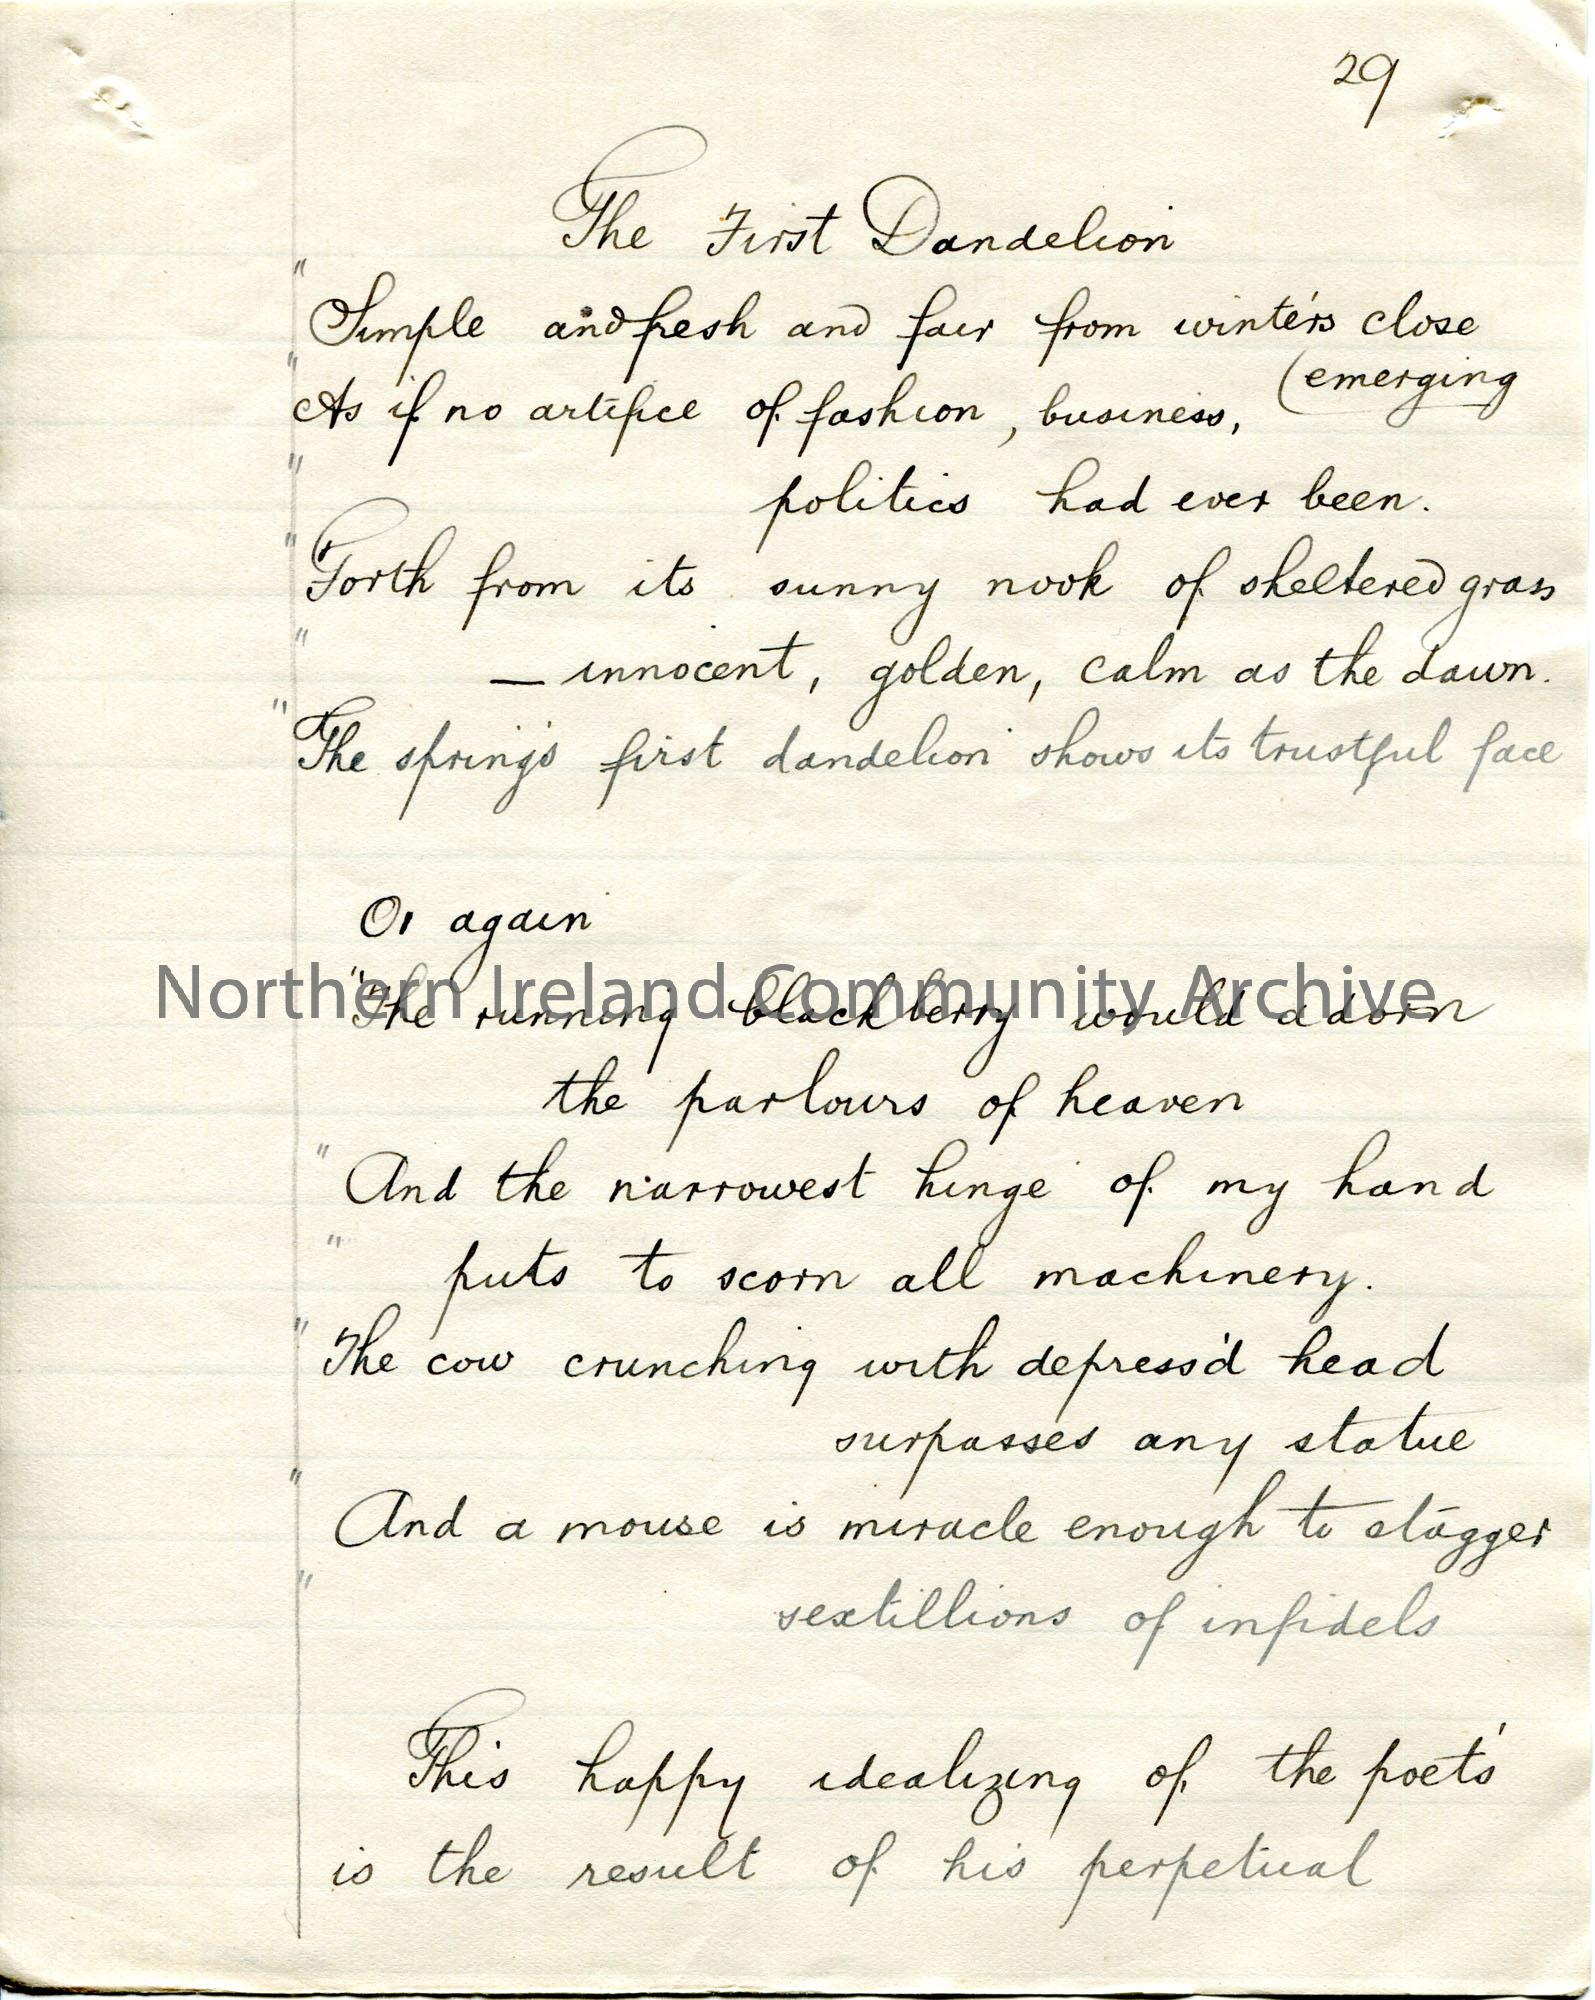 29
The First Dandelion
" Simple and fresh and fair from winter's close
(emerging
" As if no artifice of fashion, business,
" politics had ever been.
" Forth from its sunny nook of sheltered grass
" — innocent, golden, calm as the dawn.
" The spring's first dandelion shows its trustful face
Or again
"The running blackberry would adorn
Northern Ireland Community Archive
the parlours of heaven
" And the narrowest hinge of my hand
" puts to scorn all machinery.
" The cow crunching with depress'd head
surpasses any statue
" And a mouse is miracle enough to stagger
" sextillions of infidels
This happy idealizing of the poet's
is the result of his perpetual